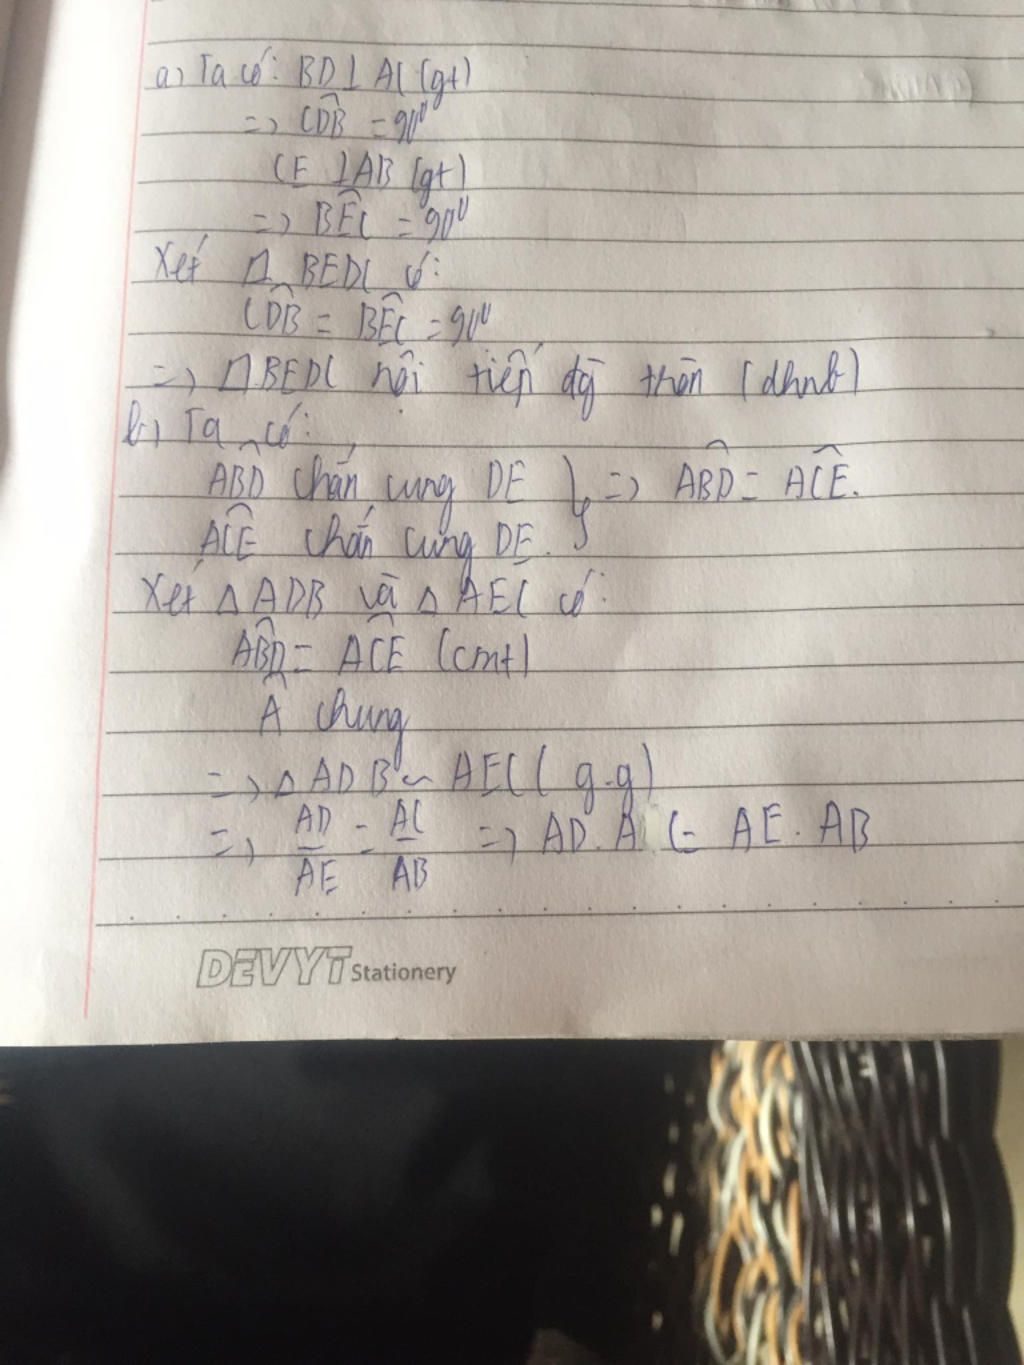 a) Ta có: BD⊥AC (gt)
=> CD̂B = 90⁰
CE ⊥AB (gt)
=> BÊC = 90⁰
Xét □ BEDC có:
CD̂B = BÊC = 90⁰
=> □BEDC nội tiếp đg tròn (dhnb)
b) Ta có:
AB̂D chắn cung DE } => AB̂D = AĈE.
AĈE chắn cung DE.
Xét △ ADB và △ AEC có:
AB̂D = AĈE (cmt)
Â chung
=> △ ADB ~ AEC ( g.g)
=> AD/AE = AC/AB => AD.AC = AE.AB
DEVYT Stationery